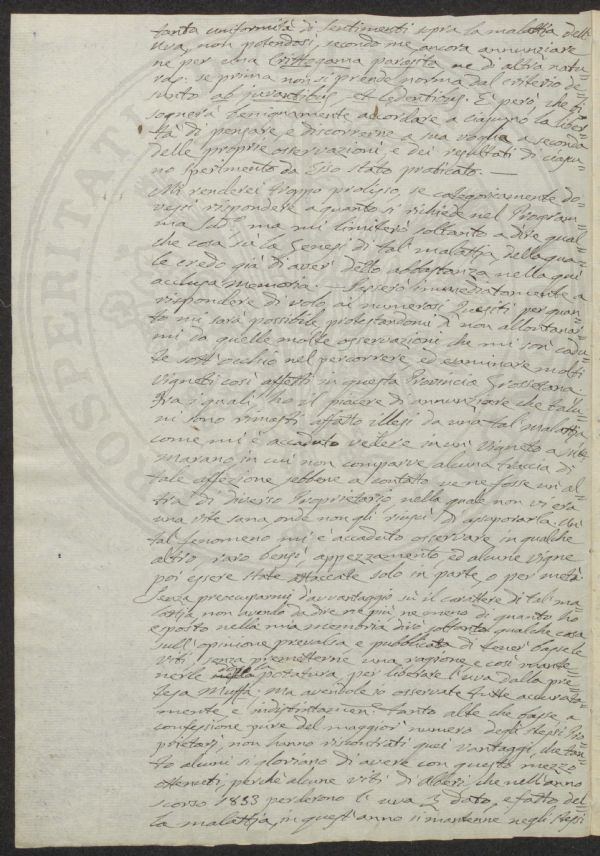 tanta uniformità di sentimenti sopra la malattia delle
Uva, non potendosi, secondo me, ancora annunziare
ne per una Crittogama parasita ne di altra natu=
ra, se prima non si prende norma dal criterio de=
sunto ab juvantibus et ledentibus. E però che bi=
sognerà benignamente accordare a ciascuno la liber=
tà di pensare, e discorrerne a sua voglia a seconda
delle proprie osservazioni e dei resultati di ciascu=
no sperimento da Esso stato praticato. —
Mi renderei troppo prolisso, se categoricamente do=
vessi rispondere a quanto si richiede nel Program=
ma ma mi limiterò soltanto a dire qual=
che cosa su la Genesi di tal malattia, della qua=
le credo già di aver detto abbastanza nella qui
acclusa Memoria. — Passerò immediatamente a
rispondere di volo ai numerosi Quesiti per quan=
to mi sarà possibile protestandomi di non allontanar=
mi da quelle molte osservazioni che mi son cadu=
te sott'occhio nel percorrere ed esaminare molti
Vigneti così affetti in questa Provincia Grossetana
tra i quali ho il piacere di annunziare che talu=
ni sono rimasti affatto illesi da una tal malattia
come mi è accaduto vedere in un Vigneto a
in cui non comparve alcuna traccia di
tale affezione sebbene a contatto ve ne fosse un al=
tra di diverso Proprietario, nella quale non vi era
una vite sana onde non gli riuscì di Un
tal fenomeno mi è accaduto osservare in qualche
altro, raro bensì, appezzamento, ed alcune vigne
poi essere state attaccate solo in parte, o per metà
Senza preoccuparmi d'avvantaggio su il carattere di tal ma=
lattia non avendo da dire ne più, ne meno di quanto ho
esposto nella mia memoria dirò soltanto qualche cosa
sull'opinione prevalsa e pubblicata di tener basse le
viti, senza premetterne una ragione e così mante=
nerle nella potatura, per liberare l'uva dalla pre=
tesa Muffa. Ma avendole io osservate tutte accurata=
mente, e indistintamen. tanto alte che basse, a
confessione pure del maggior numero degli stessi Pro=
prietarj, non hanno riscontrati quei vantaggi, che tan=
to alcuni si gloriano di avere con questo mezzo
ottenuti, perchè alcune viti di Alberi, che nell'anno
scorso 1853 perderono l'uva dato, e fatto del=
la malattia, in quest'anno si mantenne negli stessi